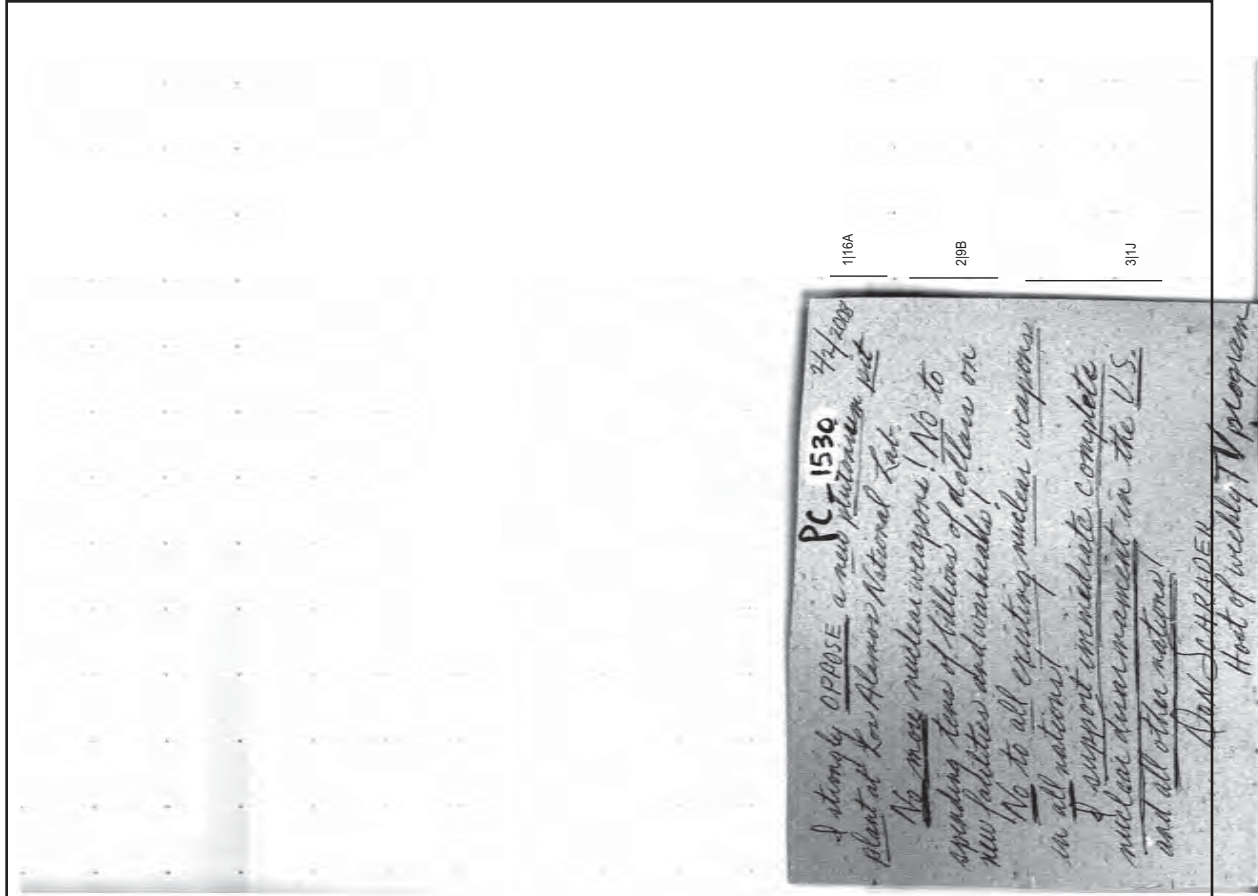 PC-1530
2/2/2008
I strongly OPPOSE a new plutonium pit
plant at Los Alamos National Lab.
No more nuclear weapons! No to
spending tens of billions of dollars on
new facilities and warheads!
No to all existing nuclear weapons
in all nations!
I support immediate complete
nuclear disarmament in the U.S.
and all other nations!
DAN SCHRADER
Host of weekly TV program
1|16A
2|9B
3|1J